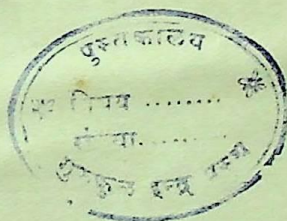 पुस्तकालय
विषय ........
संख्या.........
गुरुकुल इन्द्र प्रस्थ